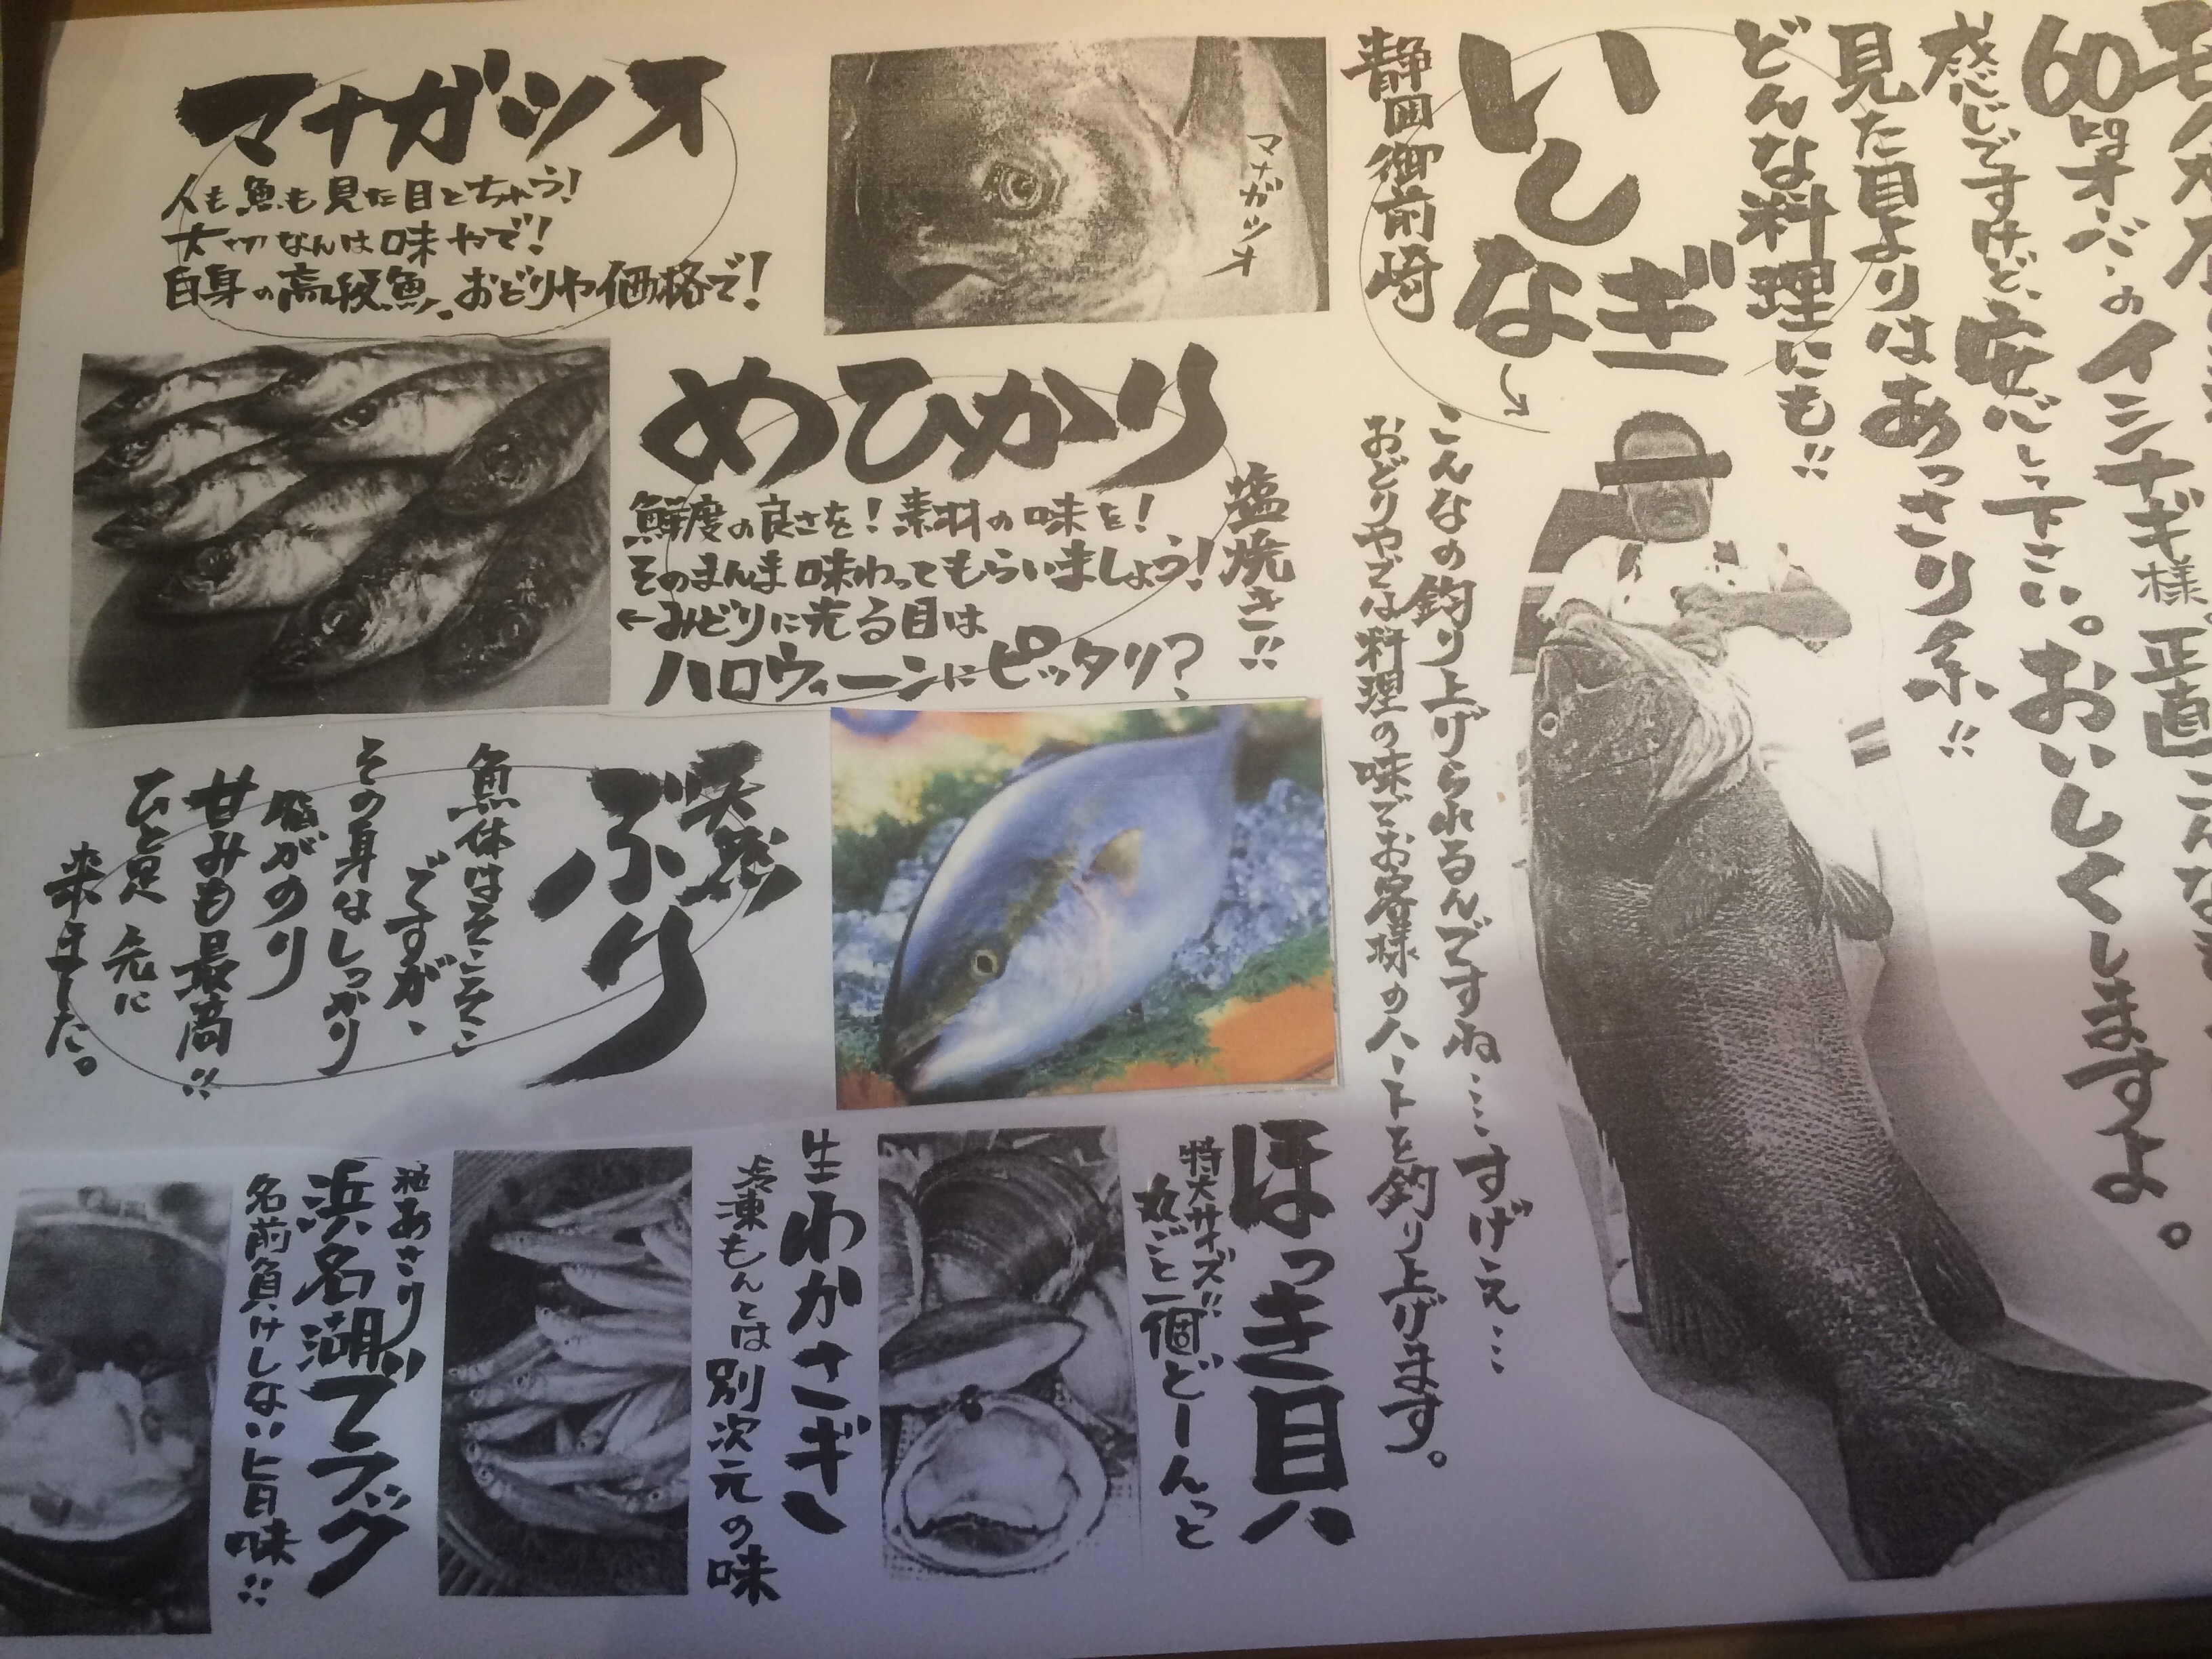 60kgオーバーのイシナギ様。正直こんな
感じですけど、安心して下さい。おいしくしますよ。
見た目よりはあっさり系!!
どんな料理にも!!
いしなぎ
静岡御前崎
こんなの釣り上げられるんですね……すげえ…
おどりやでは料理の味でお客様のハートを釣り上げます。
マナガツオ
マナガツオ
人も魚も見た目とちゃう!
大切なんは味やで!
白身の高級魚、おどりや価格で!
めひかり
塩焼き!!
鮮度の良さを!素材の味を!
そのまんま味わってもらいましょう!
←みどりに光る目は
ハロウィーンにピッタリ?
天然
ぶり
魚体はそこそこ
ですが、
その身はしっかり
脂がのり
甘みも最高!!
ひと足先に
来ました。
ほっき貝
特大サイズ!!
丸ごと一個どーんっと
生わかさぎ
冷凍もんとは別次元の味
あさり
浜名湖ブラック
名前負けしない旨味!!